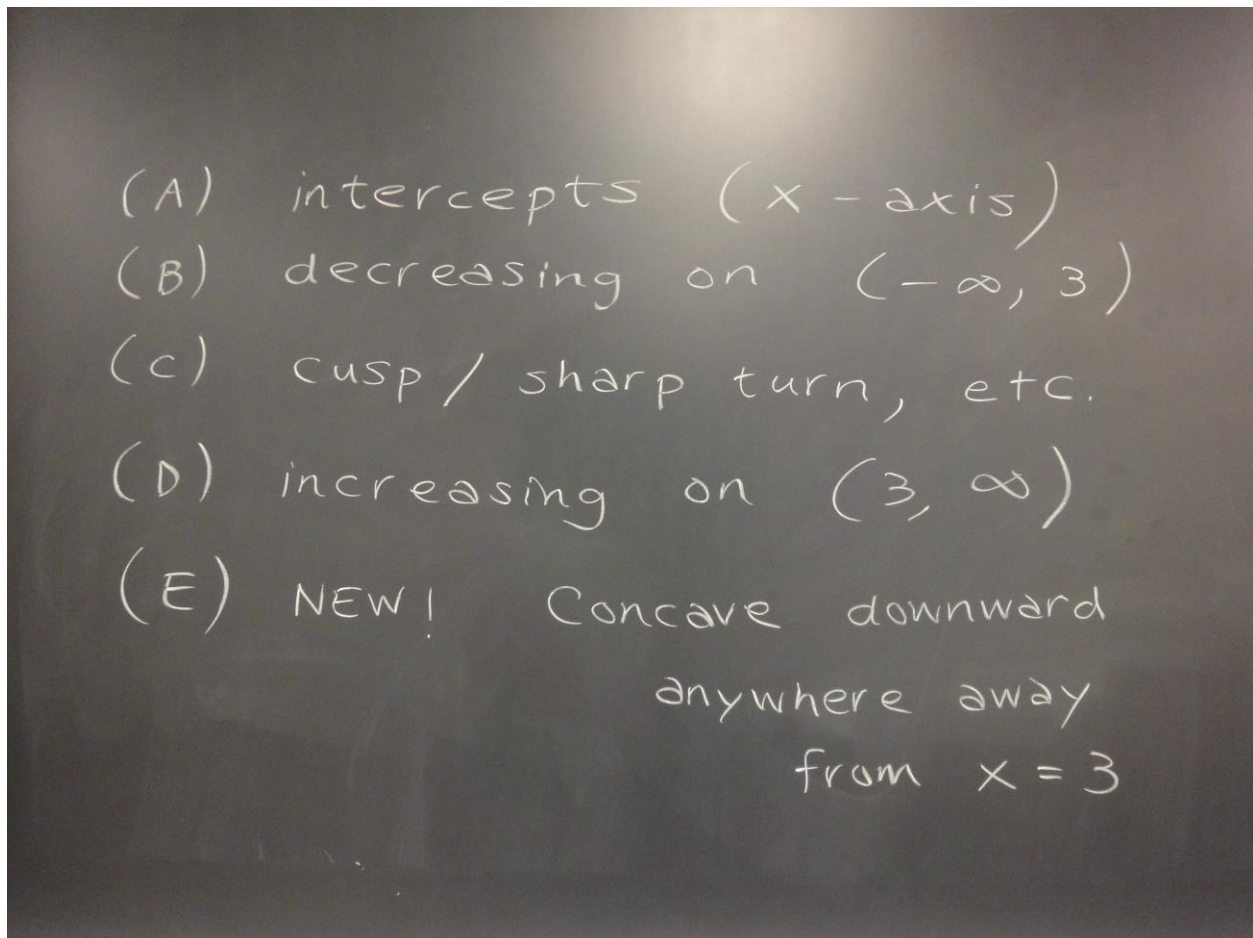 (A) intercepts (x - axis)
(B) decreasing on (-∞, 3)
(C) cusp / sharp turn, etc.
(D) increasing on (3, ∞)
(E) NEW! Concave downward
anywhere away
from x = 3